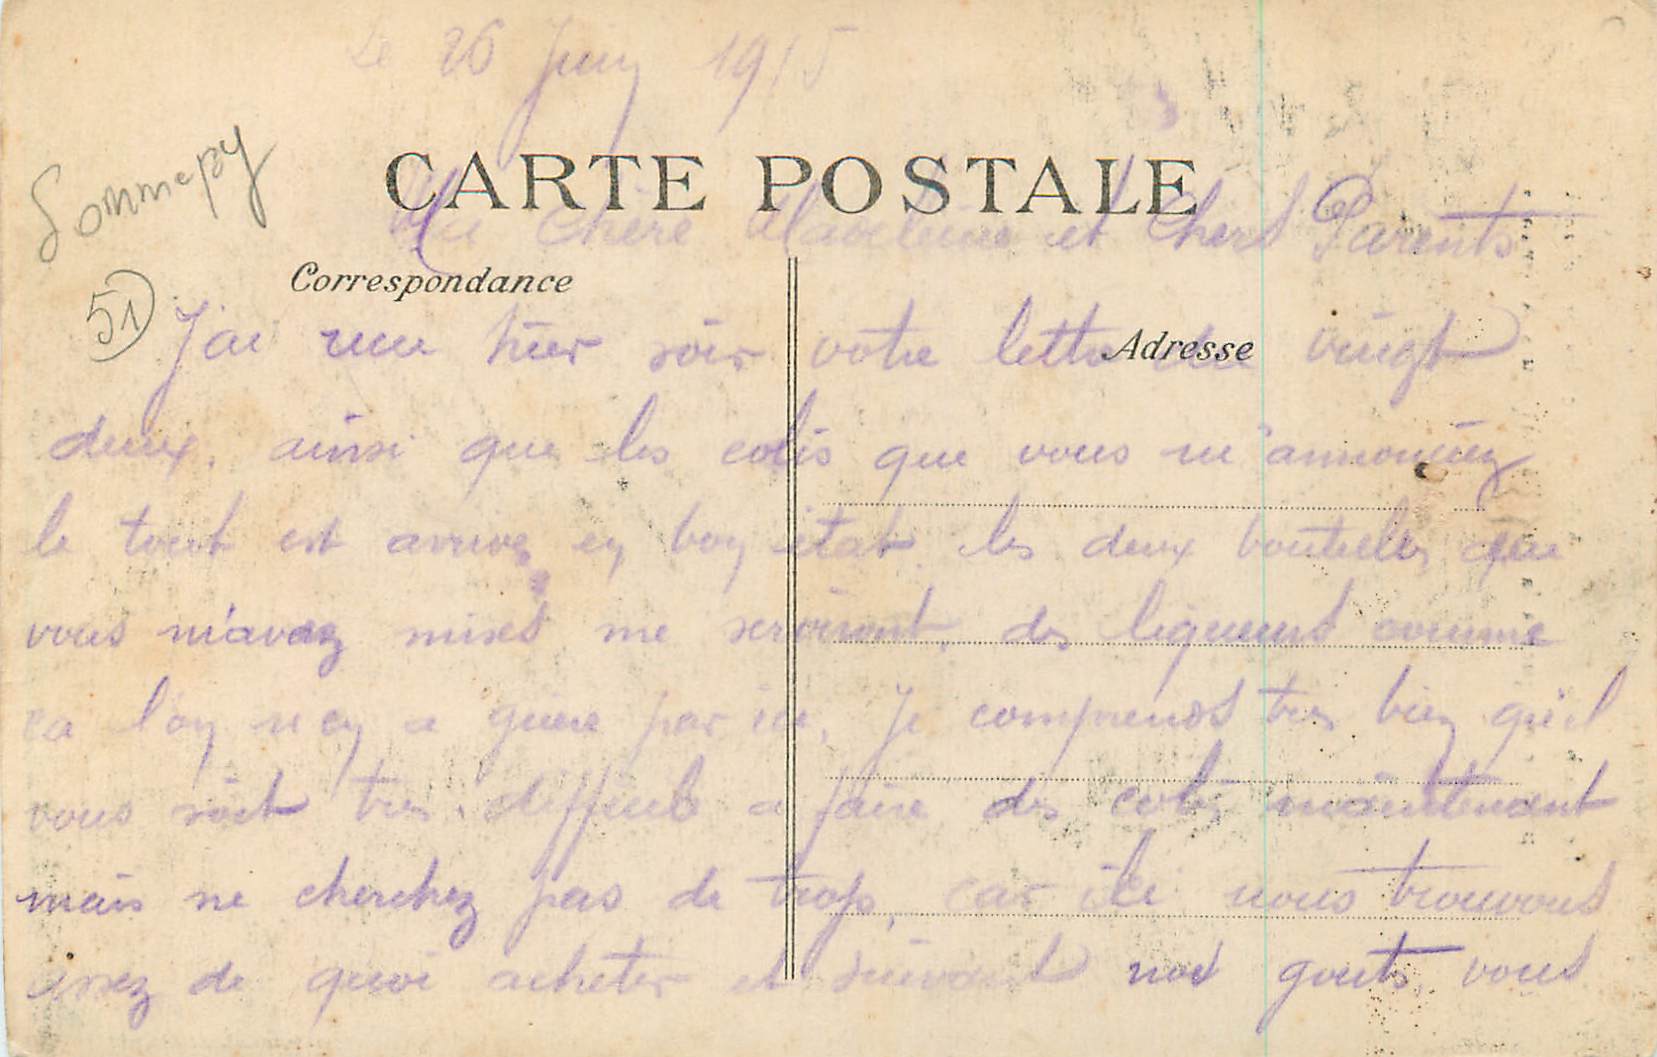 Le 26 Juin 1915
Sommepy
CARTE POSTALE
Ma Chère Madeleine et Chers Parents
Correspondance
51
J'ai recu hier soir votre lettre du vingt
Adresse
deux, ainsi que les colis que vous m'annonciez
le tout est arrivé en bon état, les deux bouteilles que
vous m'avez mises me serviront, des liqueurs comme
ca l'on n'en a guère par ici, Je comprends tres bien qu'il
vous soit tres difficile a faire des colis maintenant
mais ne cherchez pas de trop, car ici nous trouvons
assez de quoi acheter et suivant nos gouts, vous